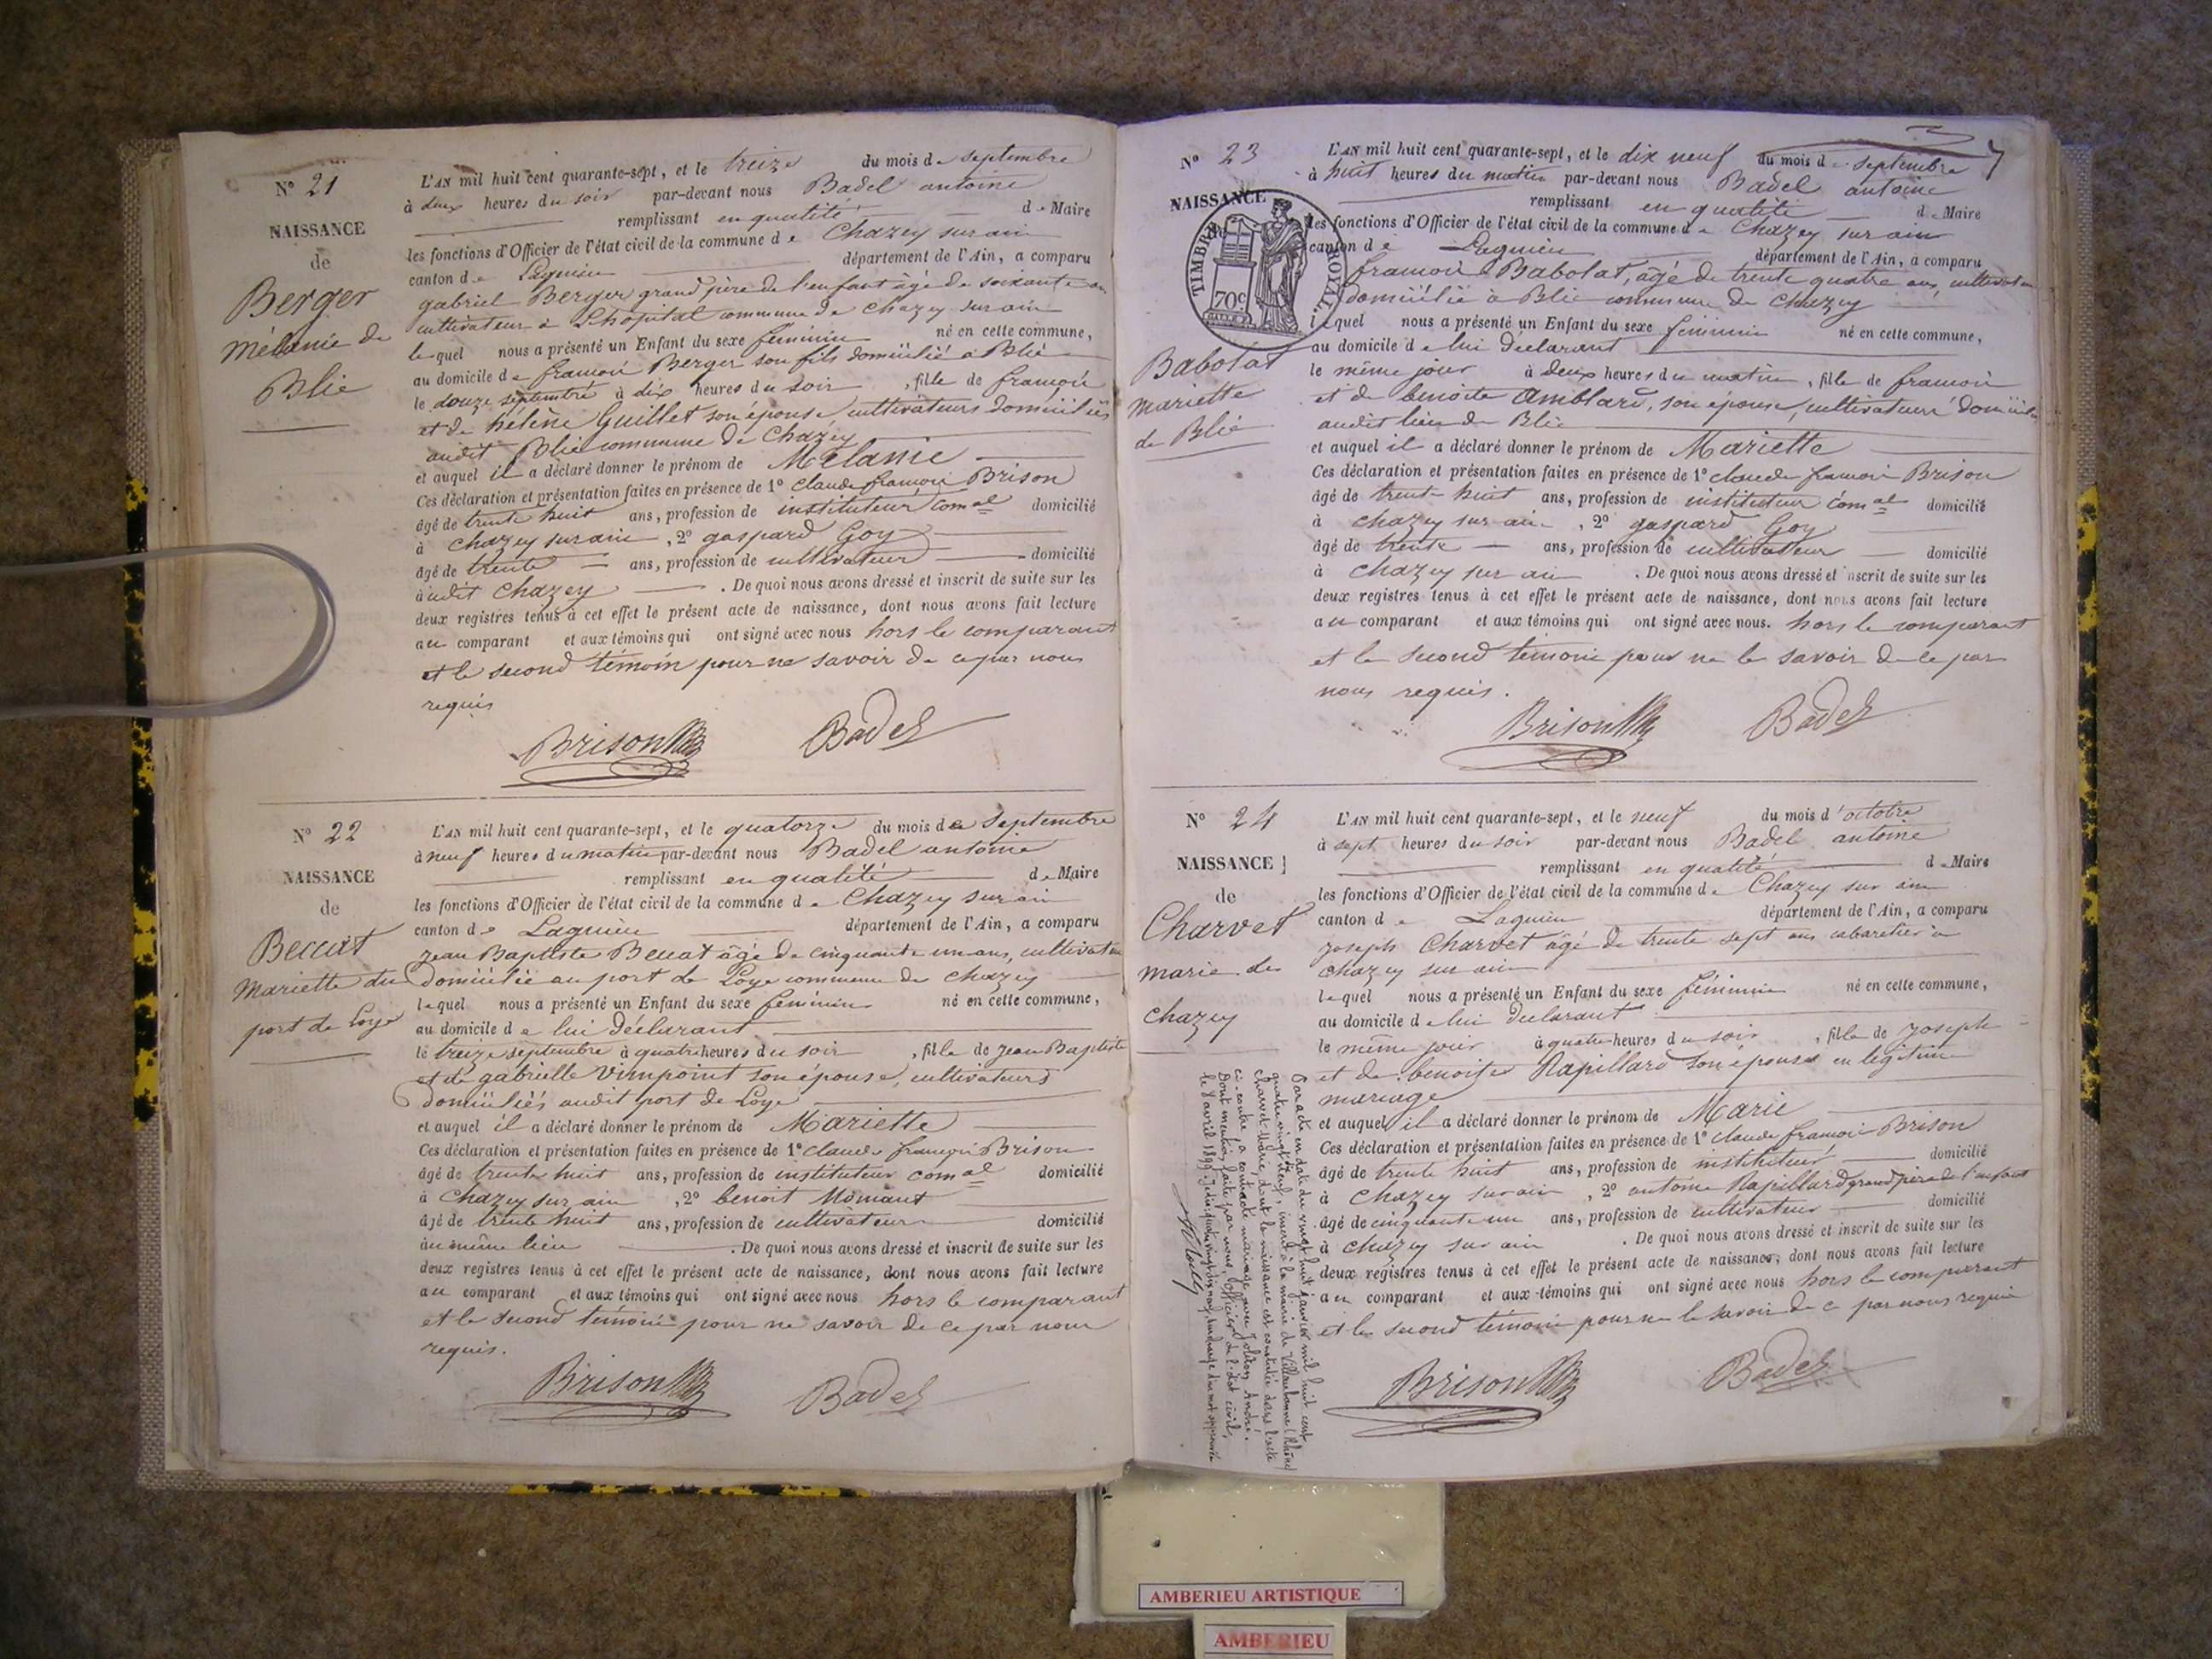 N° 21
NAISSANCE
de
Berger
Mélanie de
Blie
L'AN mil huit cent quarante-sept, et le treize du mois de septembre
à deux heures du soir par-devant nous Badel antoine
remplissant en qualité de Maire
les fonctions d'Officier de l'état civil de la commune de Chazey sur ain
canton de Lagnieu département de l'Ain, a comparu
gabriel Berger grand père de l'enfant âgé de soixante ans
cultivateur à L'hopital commune de Chazey sur ain
lequel nous a présenté un Enfant du sexe féminin né en cette commune,
au domicile de françois Berger son fils domicilié à Blie
le douze septembre à dix heures du soir, fille de françois
et de hélène Guillet son épouse cultivateurs domiciliés
audit Blie commune de Chazey
et auquel il a déclaré donner le prénom de Mélanie
Ces déclaration et présentation faites en présence de 1° Claude françois Brison
âgé de trente huit ans, profession de instituteur comal domicilié
à Chazey sur ain, 2° gaspard Goy
âgé de trente ans, profession de cultivateur domicilié
audit Chazey. De quoi nous avons dressé et inscrit de suite sur les
deux registres tenus à cet effet le présent acte de naissance, dont nous avons fait lecture
au comparant et aux témoins qui ont signé avec nous hors le comparant
et le second témoin pour ne savoir de ce par nous
requis
Brison Badel
N° 22
NAISSANCE
de
Beccat
Mariette du
port de Loye
L'AN mil huit cent quarante-sept, et le quatorze du mois de Septembre
à neuf heures du matin par-devant nous Badel antoine
remplissant en qualité de Maire
les fonctions d'Officier de l'état civil de la commune de Chazey sur ain
canton de Lagnieu département de l'Ain, a comparu
Jean Baptiste Beccat âgé de cinquante un ans, cultivateur
domicilié au port de Loye commune de Chazey
lequel nous a présenté un Enfant du sexe féminin né en cette commune,
au domicile de lui déclarant
le treize septembre à quatre heures du soir, fille de Jean Baptiste
et de gabrielle Vimpoint son épouse, cultivateurs
domiciliés audit port de Loye
et auquel il a déclaré donner le prénom de Mariette
Ces déclaration et présentation faites en présence de 1° Claude françois Brison
âgé de trente huit ans, profession de instituteur comal domicilié
à Chazey sur ain, 2° benoit Momant
âgé de trente huit ans, profession de cultivateur domicilié
au même lieu. De quoi nous avons dressé et inscrit de suite sur les
deux registres tenus à cet effet le présent acte de naissance, dont nous avons fait lecture
au comparant et aux témoins qui ont signé avec nous hors le comparant
et le second témoin pour ne savoir de ce par nous
requis.
Brison Badel
7
N° 23
NAISSANCE
TIMBRE ROYAL
70c
Babolat
Mariette
de Blie
L'AN mil huit cent quarante-sept, et le dix neuf du mois de septembre
à huit heures du matin par-devant nous Badel antoine
remplissant en qualité de Maire
les fonctions d'Officier de l'état civil de la commune de Chazey sur ain
canton de Lagnieu département de l'Ain, a comparu
françois Babolat, âgé de trente quatre ans, cultivateur
domicilié à Blie commune de Chazey
lequel nous a présenté un Enfant du sexe féminin né en cette commune,
au domicile de lui déclarant
le même jour à deux heures du matin, fille de françois
et de benoite Amblard, son épouse, cultivateurs domiciliés
audit lieu de Blie
et auquel il a déclaré donner le prénom de Mariette
Ces déclaration et présentation faites en présence de 1° claude françois Brison
âgé de trente huit ans, profession de instituteur comal domicilié
à chazey sur ain, 2° gaspard Goy
âgé de trente ans, profession de cultivateur domicilié
à chazey sur ain. De quoi nous avons dressé et inscrit de suite sur les
deux registres tenus à cet effet le présent acte de naissance, dont nous avons fait lecture
au comparant et aux témoins qui ont signé avec nous. hors le comparant
et le second témoin pour ne le savoir de ce par
nous requis.
Brison Badel
N° 24
NAISSANCE
de
Charvet
marie de
Chazey
L'AN mil huit cent quarante-sept, et le neuf du mois d'octobre
à sept heures du soir par-devant nous Badel antoine
remplissant en qualité de Maire
les fonctions d'Officier de l'état civil de la commune de Chazey sur ain
canton de Lagnieu département de l'Ain, a comparu
joseph Charvet âgé de trente sept ans cabaretier à
Chazey sur ain
lequel nous a présenté un Enfant du sexe féminin né en cette commune,
au domicile de lui déclarant
le même jour à quatre heures du soir, fille de joseph
et de benoite Rapillard son épouse en légitime
mariage
et auquel il a déclaré donner le prénom de Marie
Ces déclaration et présentation faites en présence de 1° claude françois Brison
âgé de trente huit ans, profession de instituteur domicilié
à Chazey sur ain, 2° antoine Rapillard grand père de l'enfant
âgé de cinquante un ans, profession de cultivateur domicilié
à chazey sur ain. De quoi nous avons dressé et inscrit de suite sur les
deux registres tenus à cet effet le présent acte de naissance, dont nous avons fait lecture
au comparant et aux témoins qui ont signé avec nous hors le comparant
et le second témoin pour ne le savoir de ce par nous requis
Brison Badel
Par acte en date du vingt huit janvier mil huit cent
quatre vingt neuf, inscrit à la mairie de Villeurbanne (Rhône)
Charvet Marie, dont la naissance est constatée dans l'acte
ci-contre, a contracté mariage avec André.
Dont mention faite par nous, officier de l'état civil,
le 8 avril 1899
AMBERIEU ARTISTIQUE
AMBERIEU